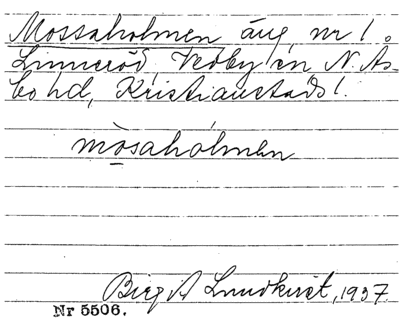 Mossaholmen äng nr 1
Linneröd, Vedby sn N. Ås-
bo hd, Kristianstads l.
mo̠saholmen
Birgit Lundkvist, 1937.
Nr 5506.